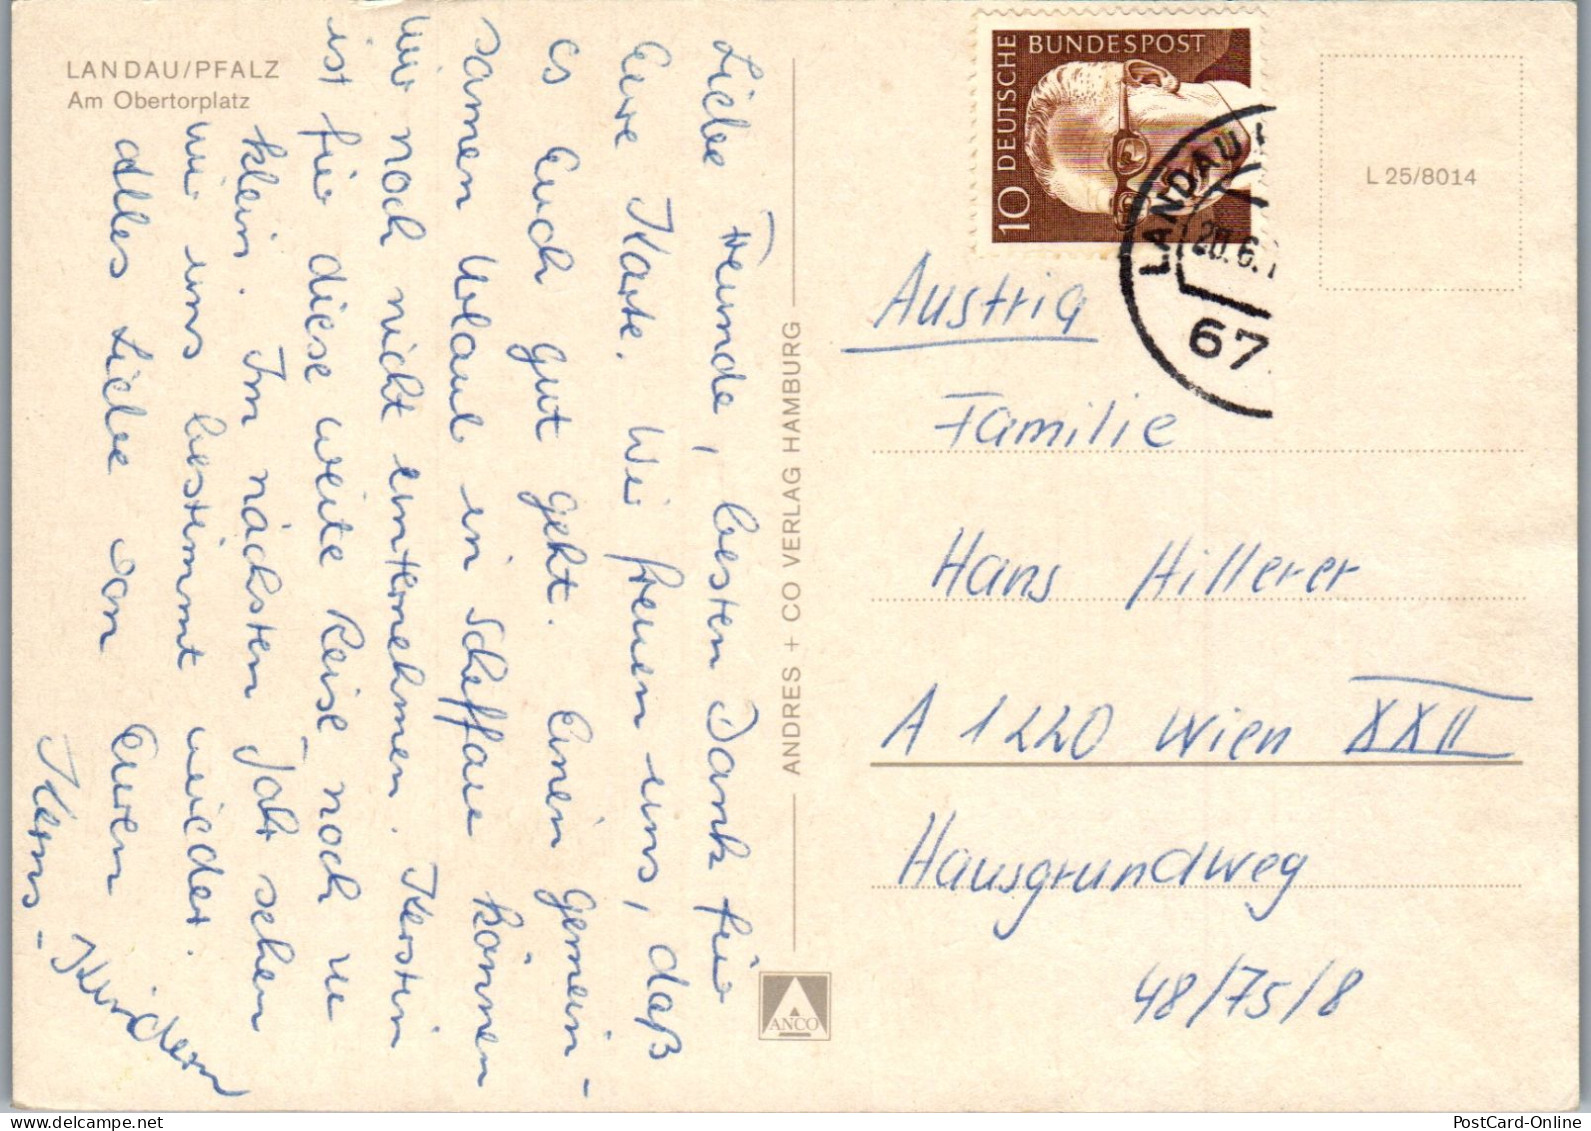 LANDAU/PFALZ
Am Obertorplatz
Liebe Freunde, besten Dank für
Eure Karte. Wir freuen uns, daß
es Euch gut geht. Einen gemein-
samen Urlaub in Scheffau können
wir noch nicht unternehmen. Kerstin
ist für diese weite Reise noch zu
klein. Im nächsten Jahr sehen
wir uns bestimmt wieder.
Alles Liebe von Euren
Kerns-Kindern
ANDRES + CO VERLAG HAMBURG
ANCO
DEUTSCHE BUNDESPOST
10
LANDAU
20.6.
67
L 25/8014
Austria
Familie
Hans Hillerer
A 1220 Wien XXII
Hausgrundweg
48/75/8
PostCard-Online